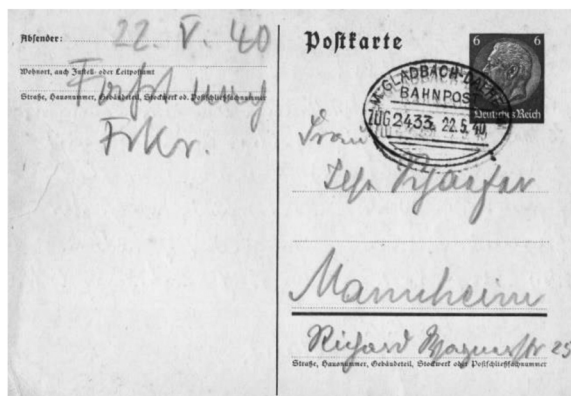 Absender: 22. V. 40
Wohnort, auch Zustell- oder Leitpostamt
Straße, Hausnummer, Gebäudeteil, Stockwerk od. Postschließfachnummer
Postkarte
6 6
Deutsches Reich
M. GLADBACH-
BAHNPOST
ZUG 2433 22.5.40
Frau
Schaefer
Mannheim
Richard Wagnerstr 25
Straße, Hausnummer, Gebäudeteil, Stockwerk oder Postschließfachnummer